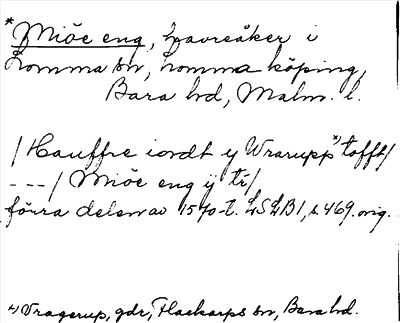 *Miöe eng, havreåker i
Lomma sn, Lomma köping,
Bara hd, Malm. l.
/ Hauffre iordt y Wrarupp *) tofft/
---/ Miöe eng ÿ ti/
förra delen av 1570-t. LSLB1, s. 469. orig.
*) Vragerup, gdr, Flackarps sn, Bara hd.